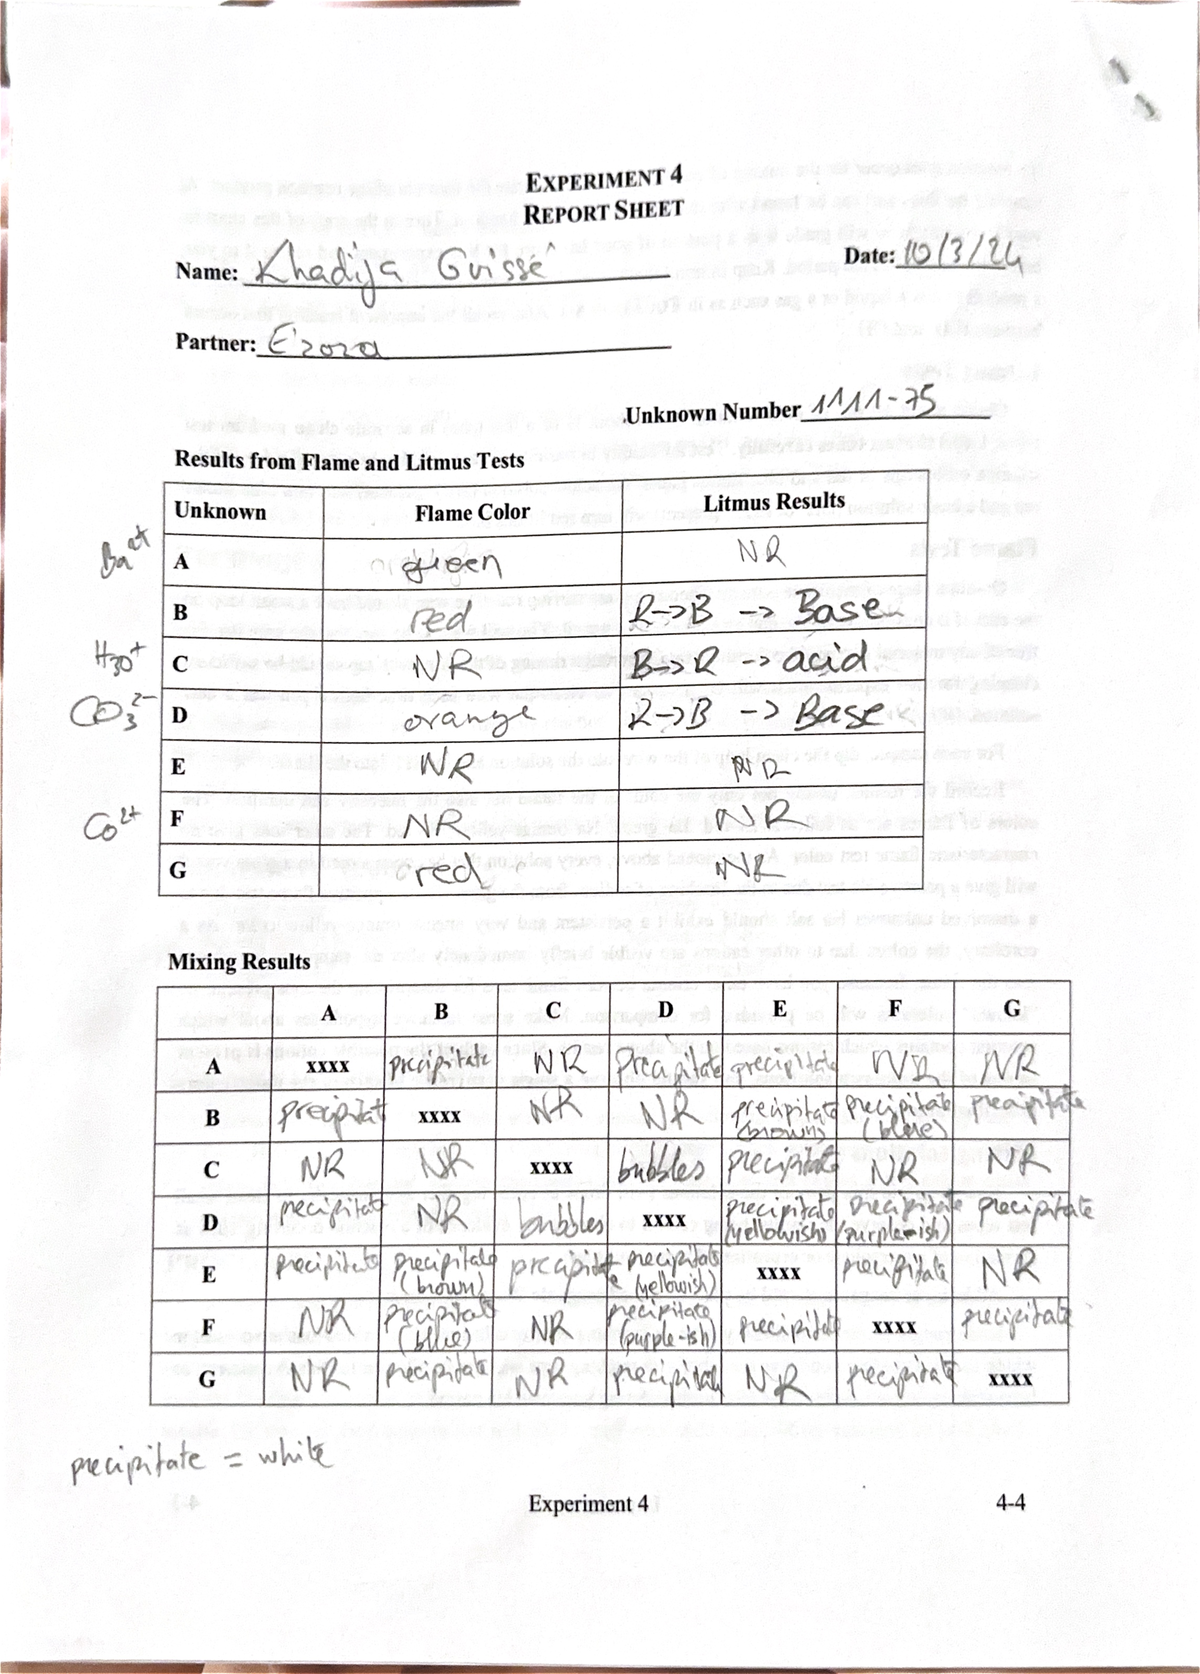 EXPERIMENT 4
REPORT SHEET
Name: Khadija Guissé Date: 10/3/24
Partner: E'zoza
Unknown Number 1111-75
Results from Flame and Litmus Tests
Unknown Flame Color Litmus Results
Ba2+ A green NR
B red R->B -> Base
H3O+ C NR B->R -> acid
CO3 2- D orange R->B -> Base
E NR NR
Co2+ F NR NR
G red NR
Mixing Results
A B C D E F G
A xxxx precipitate NR Precipitate precipitate NR NR
B precipitat xxxx NR NR precipitate (brown) precipitate (blue) precipitate
C NR NR xxxx bubbles precipitate NR NR
D precipitate NR bubbles xxxx precipitate (yellowish) precipitate (purple-ish) precipitate
E precipitate precipitate (brown) precipitate precipitate (yellowish) xxxx precipitate NR
F NR precipitate (blue) NR precipitate (purple-ish) precipitate xxxx precipitate
G NR precipitate NR precipitate NR precipitate xxxx
precipitate = white
Experiment 4 4-4